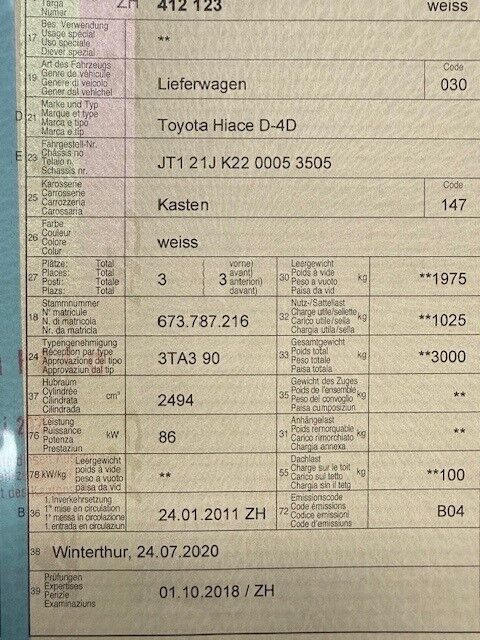 Targa
Numer
ZH 412 123 weiss
17 Bes. Verwendung
Usage spécial
Uso speciale
Diever spezial
**
19 Art des Fahrzeugs
Genre de véhicule
Genere di veicolo
Gener dal vehichel
Lieferwagen
Code
030
D 21 Marke und Typ
Marque et type
Marca e tipo
Marca e tip
Toyota Hiace D-4D
E 23 Fahrgestell-Nr.
Châssis no
Telaio n.
Schassis nr.
JT1 21J K22 0005 3505
25 Karosserie
Carrosserie
Carrozzeria
Carossaria
Kasten
Code
147
26 Farbe
Couleur
Colore
Colur
weiss
27 Plätze: Total
Places: Total
Posti: Totale
Plazs: Total
3
vorne)
avant)
anteriori)
davant)
3
30 Leergewicht
Poids à vide
Peso a vuoto
Paisa da vid
kg
**1975
18 Stammnummer
N° matricule
N. di matricola
Nr. da matricla
673.787.216
32 Nutz-/Sattellast
Charge utile/sellette
Carico utile/sella
Chargia utila/sella
kg
**1025
24 Typengenehmigung
Réception par type
Approvazione del tipo
Approvaziun dal tip
3TA3 90
33 Gesamtgewicht
Poids total
Peso totale
Paisa totala
kg
**3000
37 Hubraum
Cylindrée
Cilindrata
Cilindrada
cm³
2494
35 Gewicht des Zuges
Poids de l'ensemble
Peso del convoglio
Paisa cumposiziun
kg
**
76 Leistung
Puissance
Potenza
Prestaziun
kW
86
31 Anhängelast
Poids remorquable
Carico rimorchiato
Chargia annexa
kg
**
78 kW/kg
Leergewicht
poids à vide
peso a vuoto
paisa da vid
**
55 Dachlast
Charge sur le toit
Carico sul tetto
Chargia sin il tetg
kg
**100
B 36 1. Inverkehrsetzung
1re mise en circulation
1a messa in circolazione
1. entrada en circulaziun
24.01.2011 ZH
72 Emissionscode
Code émissions
Codice emissioni
Code d'emissiuns
B04
38 Winterthur, 24.07.2020
39 Prüfungen
Expertises
Perizie
Examinaziuns
01.10.2018 / ZH